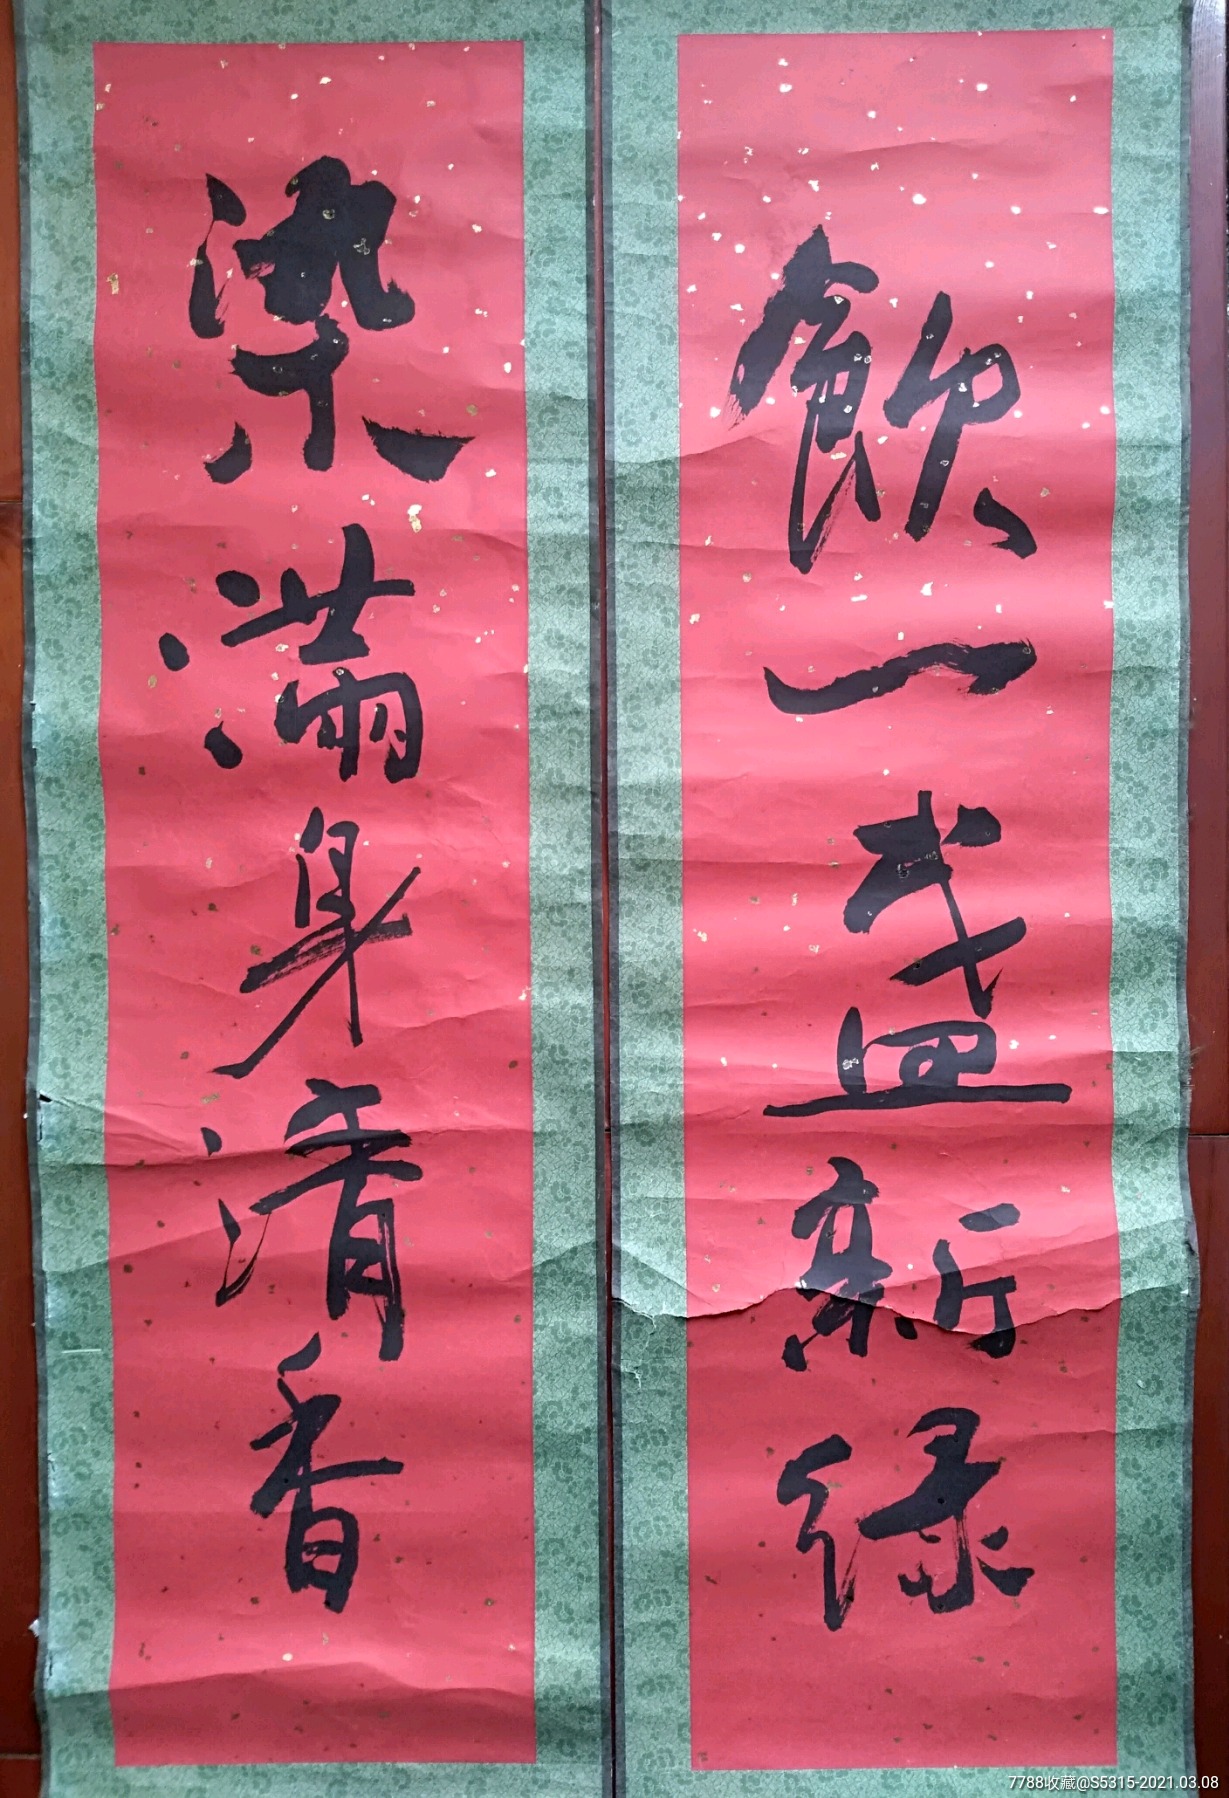 飲一盏新绿
染满身清香
7788收藏@S5315-2021.03.08